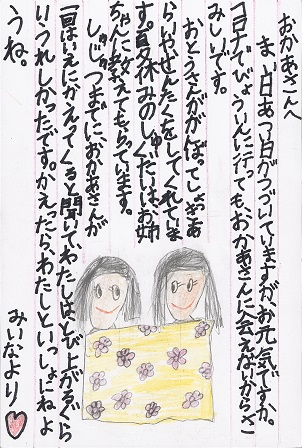 おかあさんへ
まい日あつ日がつづいていますが、お元気ですか。
コロナでびょういんに行っても、おかあさんに会えないからさ
みしいです。
おとうさんががんばってしょっきあ
らいやせんたくをしてくれていま
す。夏休みのしゅくだいは、お姉
ちゃんに教えてもらっています。
しゅじゅつまでに、おかあさんが
一回はいえにかえってくると聞いて、わたしはとび上がるぐら
いうれしかったです。かえったら、わたしといっしょにねよ
うね。
みいなより